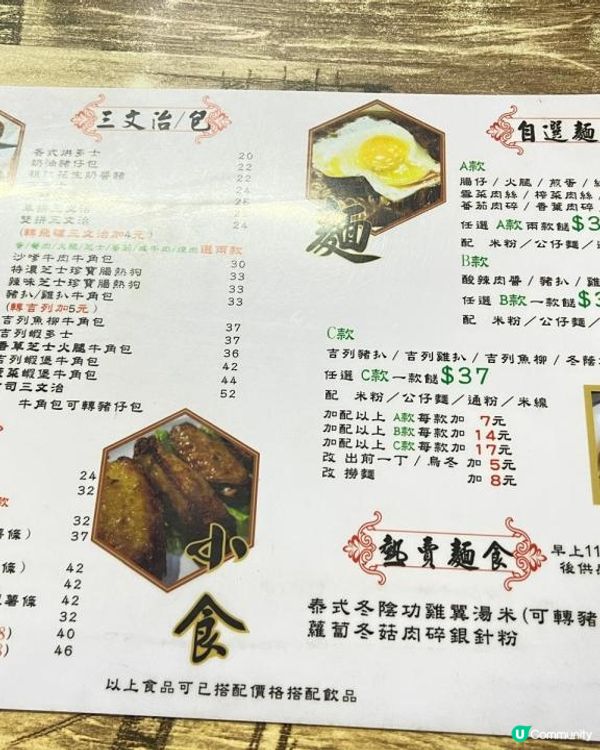 三文治/包
各式烘多士 20
奶油豬仔包 22
22
24
雙拼三文治 24
(轉飛碟三文治加4元)
蛋/餐肉/火腿/芝士/蕃茄/咸牛肉/燒肉 選兩款
沙嗲牛肉牛角包 30
特濃芝士珍寶腸熱狗 33
辣味芝士珍寶腸熱狗 33
豬扒/雞扒牛角包 33
(轉吉列加5元)
吉列魚柳牛角包 37
吉列蝦多士 37
香草芝士火腿牛角包 36
吉列蝦堡牛角包 42
蝦堡牛角包 44
司三文治 52
牛角包可轉豬仔包
24
32
款
32
條) 37
條) 42
42
薯條 42
32
40
46
小食
以上食品可已搭配價格搭配飲品
麵
自選麵
A款
腸仔 / 火腿 / 煎蛋 /
雪菜肉絲 / 榨菜肉絲
蕃茄肉碎 / 香葉肉碎
任選 A款 兩款餸 $3
配 米粉 / 公仔麵 /
B款
酸辣肉醬 / 豬扒 / 雞
任選 B款 一款餸 $3
配 米粉 / 公仔麵 /
C款
吉列豬扒 / 吉列雞扒 / 吉列魚柳 / 冬陰
任選 C款 一款餸 $37
配 米粉 / 公仔麵 / 通粉 / 米線
加配以上 A款 每款加 7元
加配以上 B款 每款加 14元
加配以上 C款 每款加 17元
改 出前一丁 / 烏冬 加 5元
改 撈麵 加 8元
熱賣麵食
早上11
後供
泰式冬陰功雞翼湯米 (可轉豬
蘿蔔冬菇肉碎銀針粉
U Community